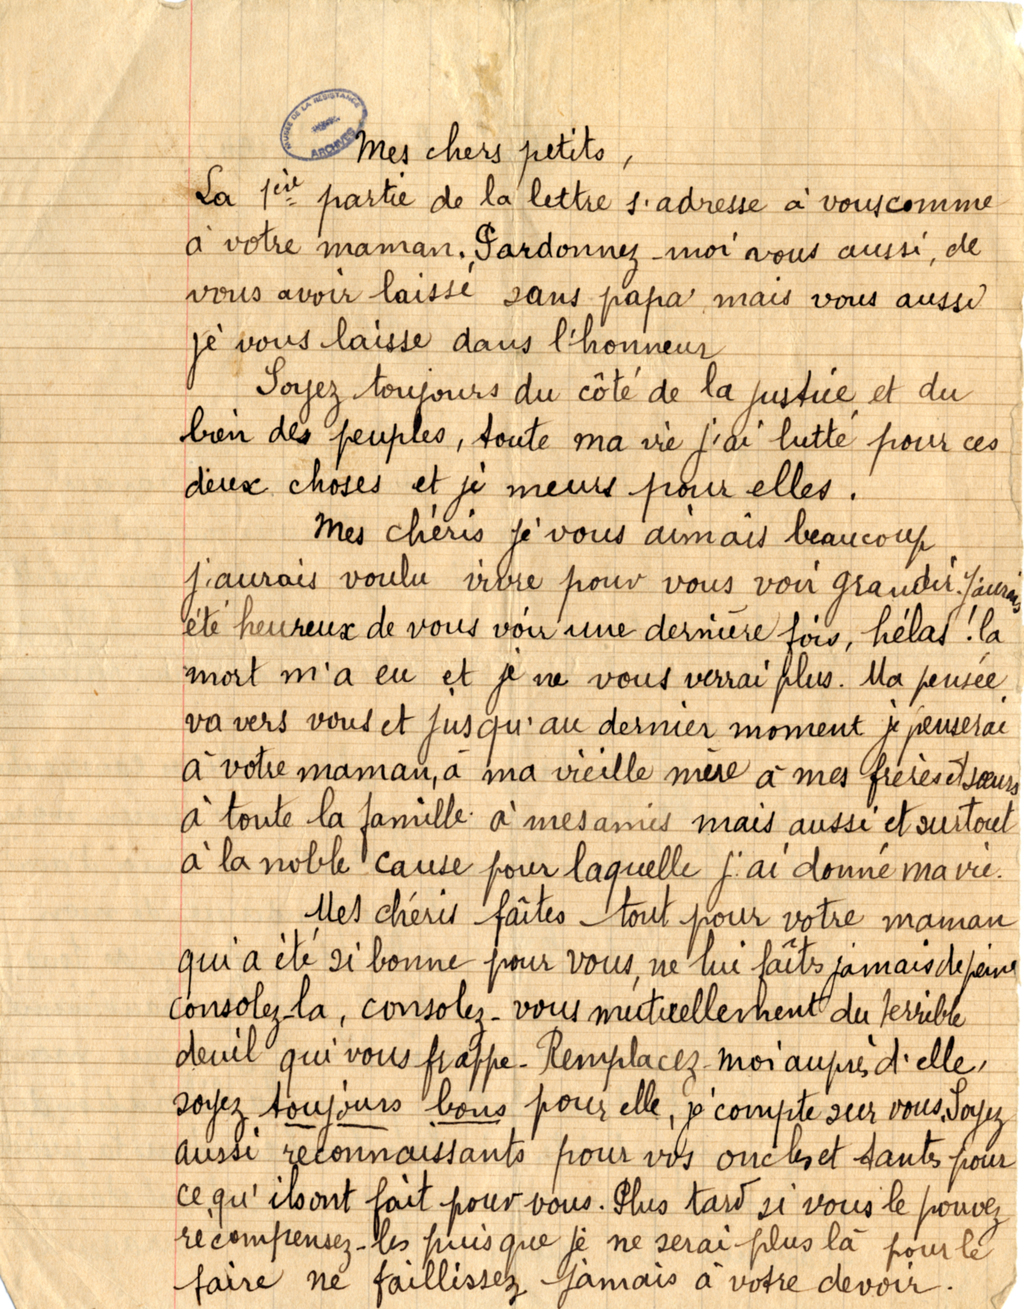 MUSÉE DE LA RÉSISTANCE
ARCHIVES
Mes chers petits,
La 1ère partie de la lettre s'adresse à vous comme
à votre maman. Pardonnez-moi vous aussi, de
vous avoir laissé sans papa mais vous aussi
je vous laisse dans l'honneur
Soyez toujours du côté de la justice et du
bien des peuples, toute ma vie j'ai lutté pour ces
deux choses et je meurs pour elles.
Mes chéris je vous aimais beaucoup
j'aurais voulu vivre pour vous voir grandir. J'aurais
été heureux de vous voir une dernière fois, hélas ! la
mort m'a eu et je ne vous verrai plus. Ma pensée
va vers vous et jusqu'au dernier moment je penserai
à votre maman, à ma vieille mère à mes frères et sœurs
à toute la famille à mes amis mais aussi et surtout
à la noble cause pour laquelle j'ai donné ma vie.
Mes chéris faîtes tout pour votre maman
qui a été si bonne pour vous, ne lui faîtes jamais de peine
consolez-la, consolez-vous mutuellement du terrible
deuil qui vous frappe - Remplacez-moi auprès d'elle,
soyez toujours bons pour elle, je compte sur vous. Soyez
aussi reconnaissants pour vos oncles et tantes pour
ce qu'ils ont fait pour vous. Plus tard si vous le pouvez
récompensez-les puisque je ne serai plus là pour le
faire ne faillissez jamais à votre devoir.